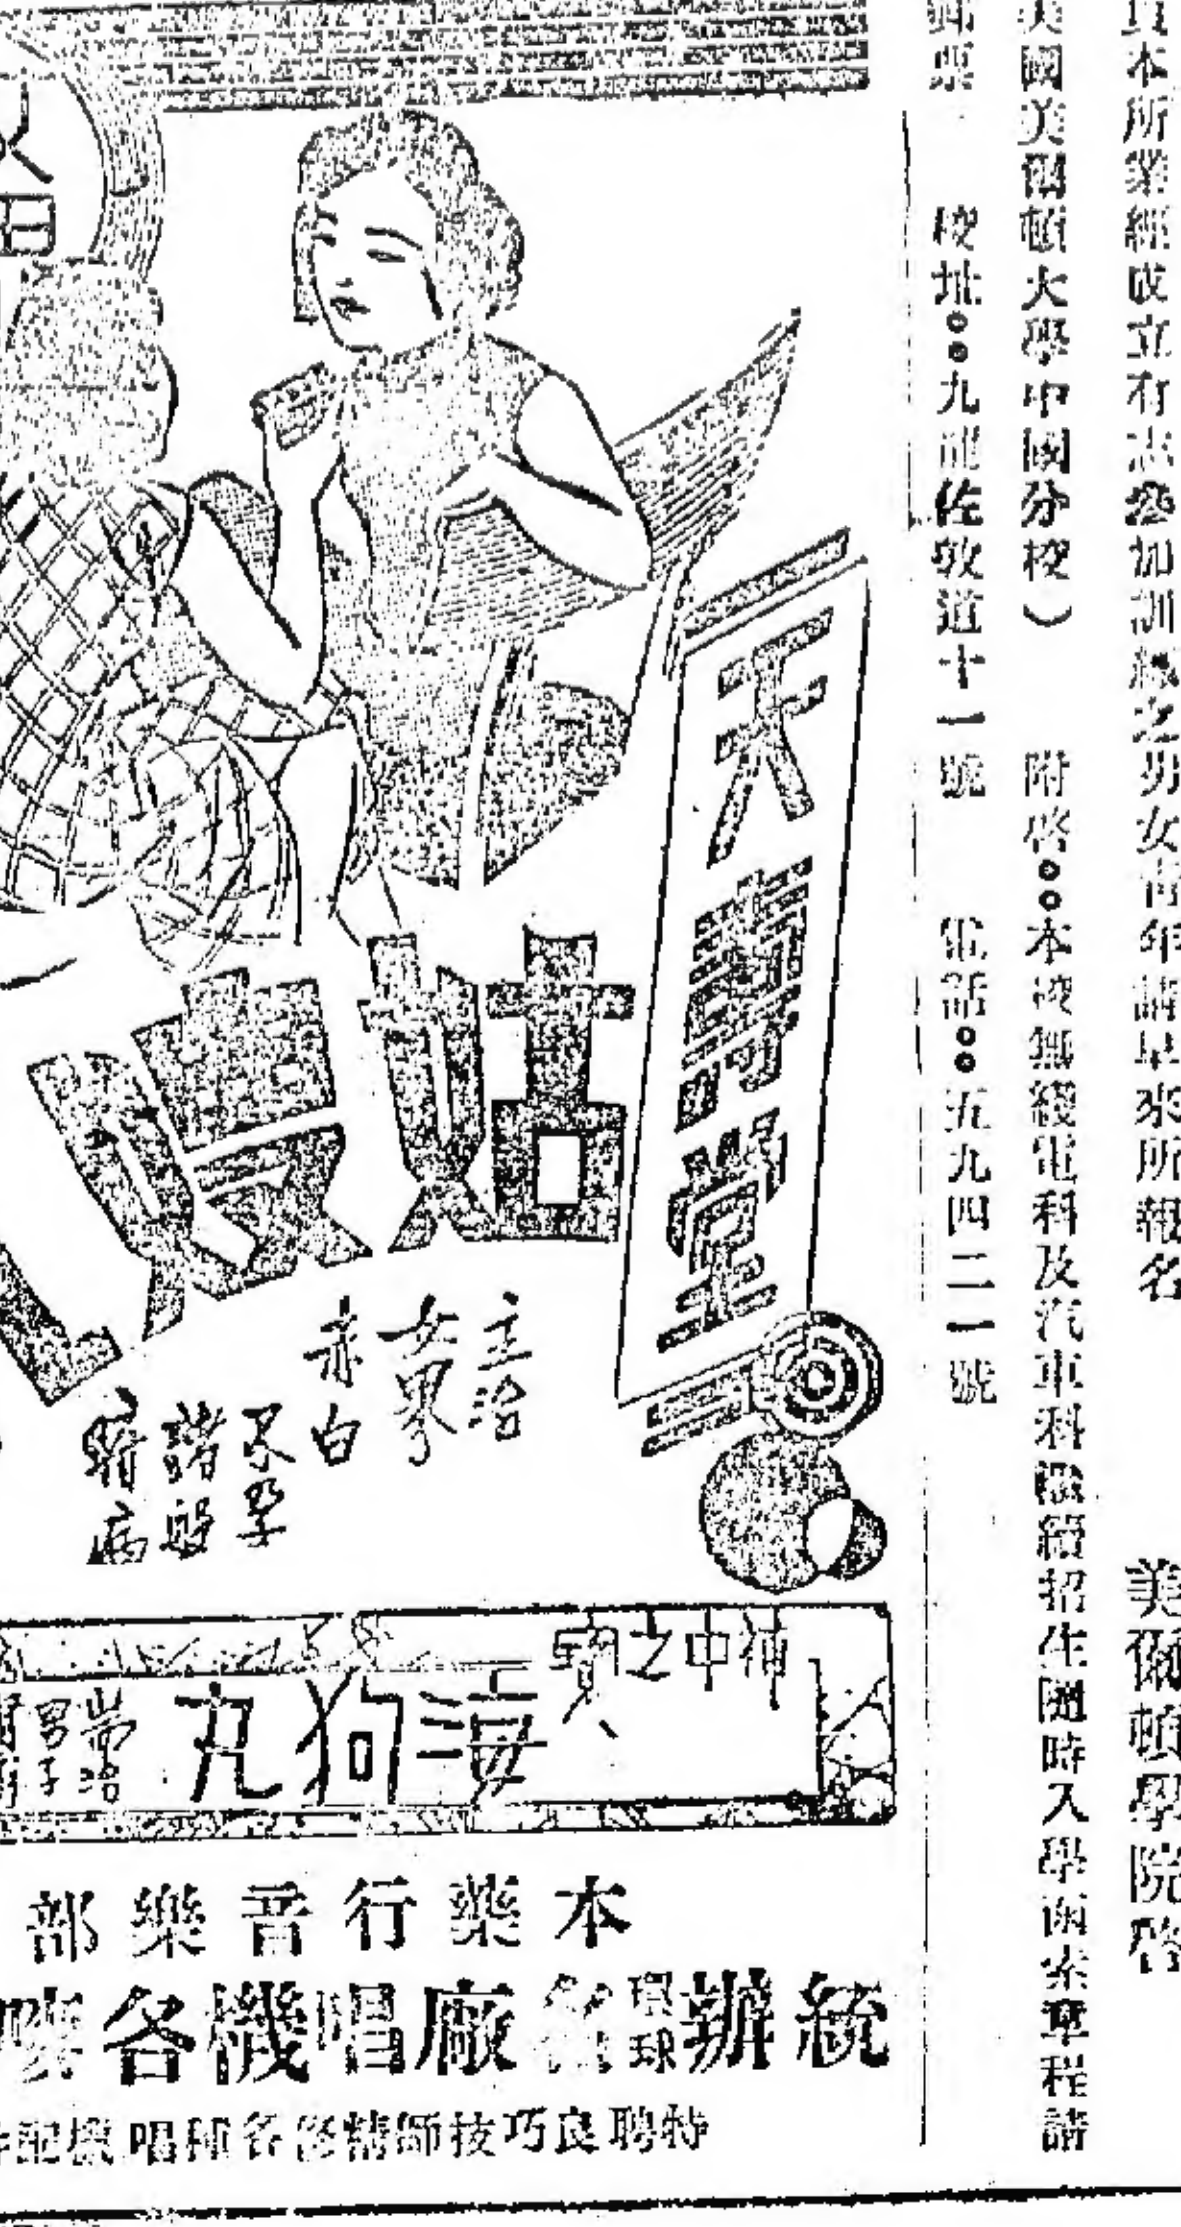 本所業經成立有志參加訓練之男女青年請早來所報名
美爾頓學院啓
美國美爾頓大學中國分校）　附啓：本校無綫電科及汽車科繼續招生隨時入學函索章程請
郵票　校址：九龍佐敦道十一號　電話：五九四二一號
天壽堂
姑嫂
主治
女界
赤白
不孕
諸般
暗病
神中之寶
海狗丸
耑治
男子
本藥行音樂部
統辦環球名廠唱機各
特聘良巧技師精修各種唱機配